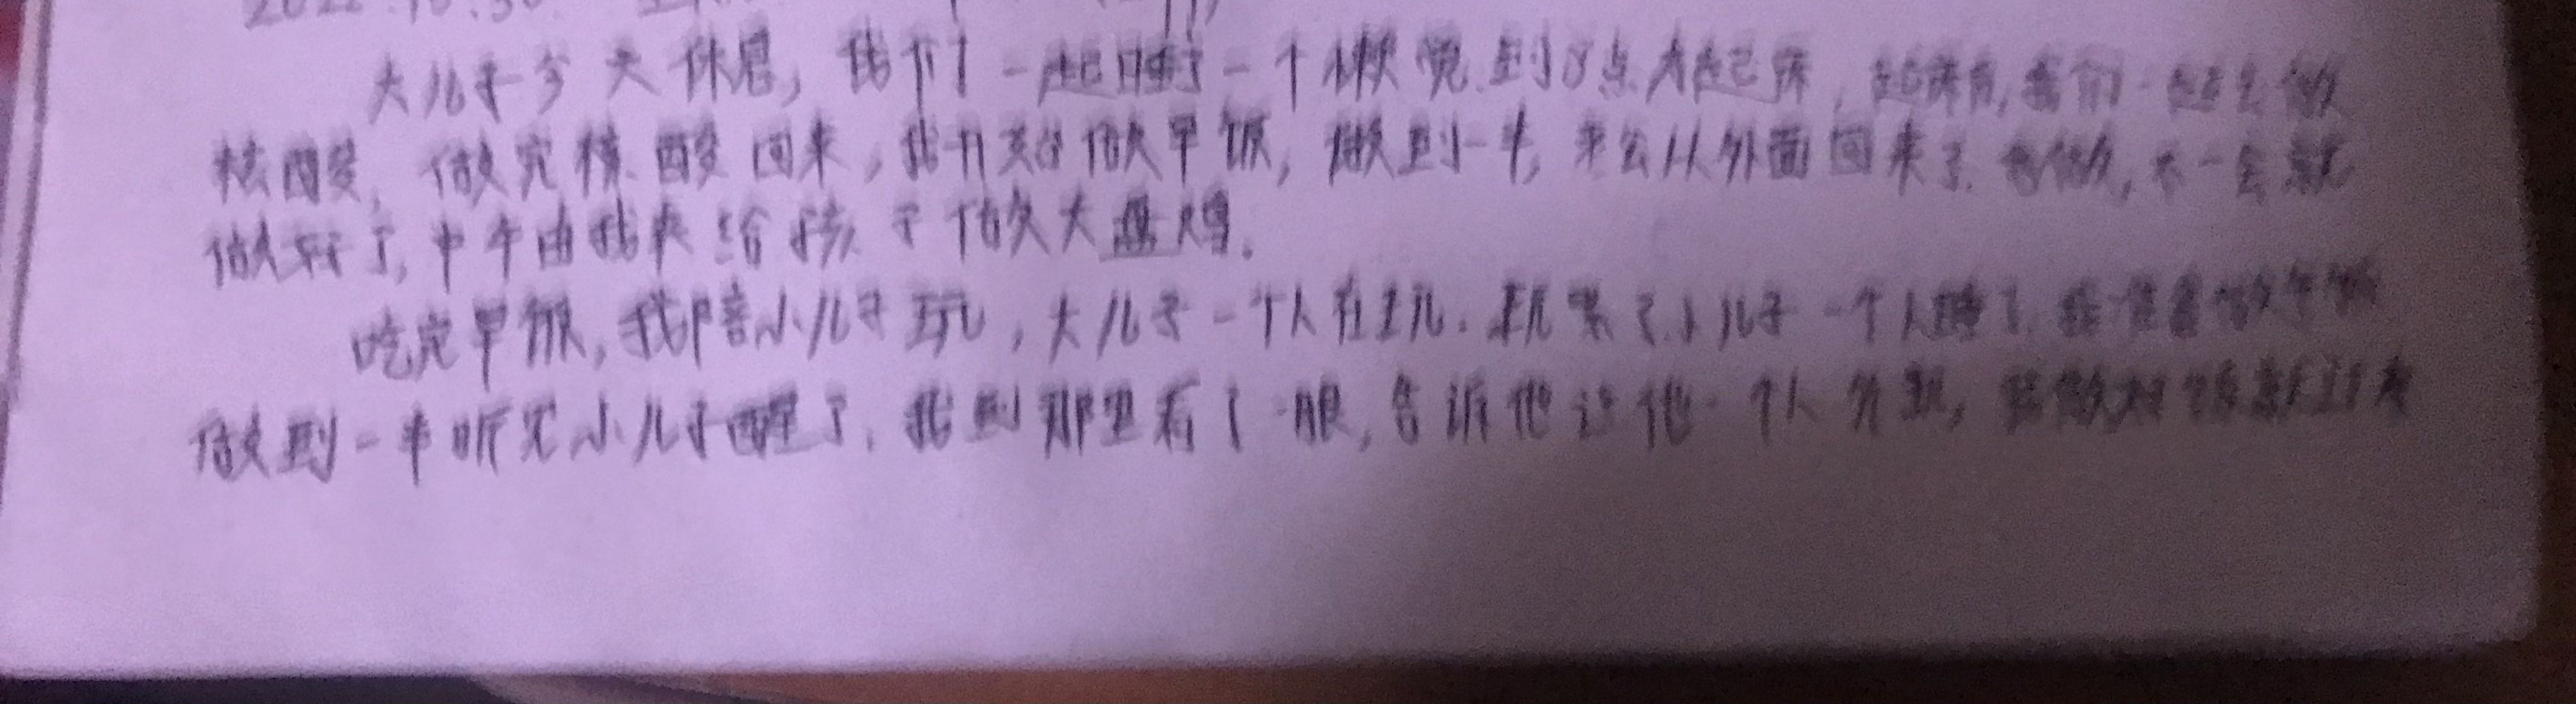 2022.10.30
大儿子今天休息，我们一起睡了一个懒觉.到8点才起床，起床后,我们一起去做
核酸，做完核酸回来，我开始做早饭，做到一半，老公从外面回来了.不一会就
做好了，中午由我来给孩子做大盘鸡.
吃完早饭，我陪小儿子玩，大儿子一个人在玩.玩累了小儿子一个人睡了.我准备做午饭
做到一半听见小儿子醒了，我到那里看了一眼，告诉他让他一个人先玩，